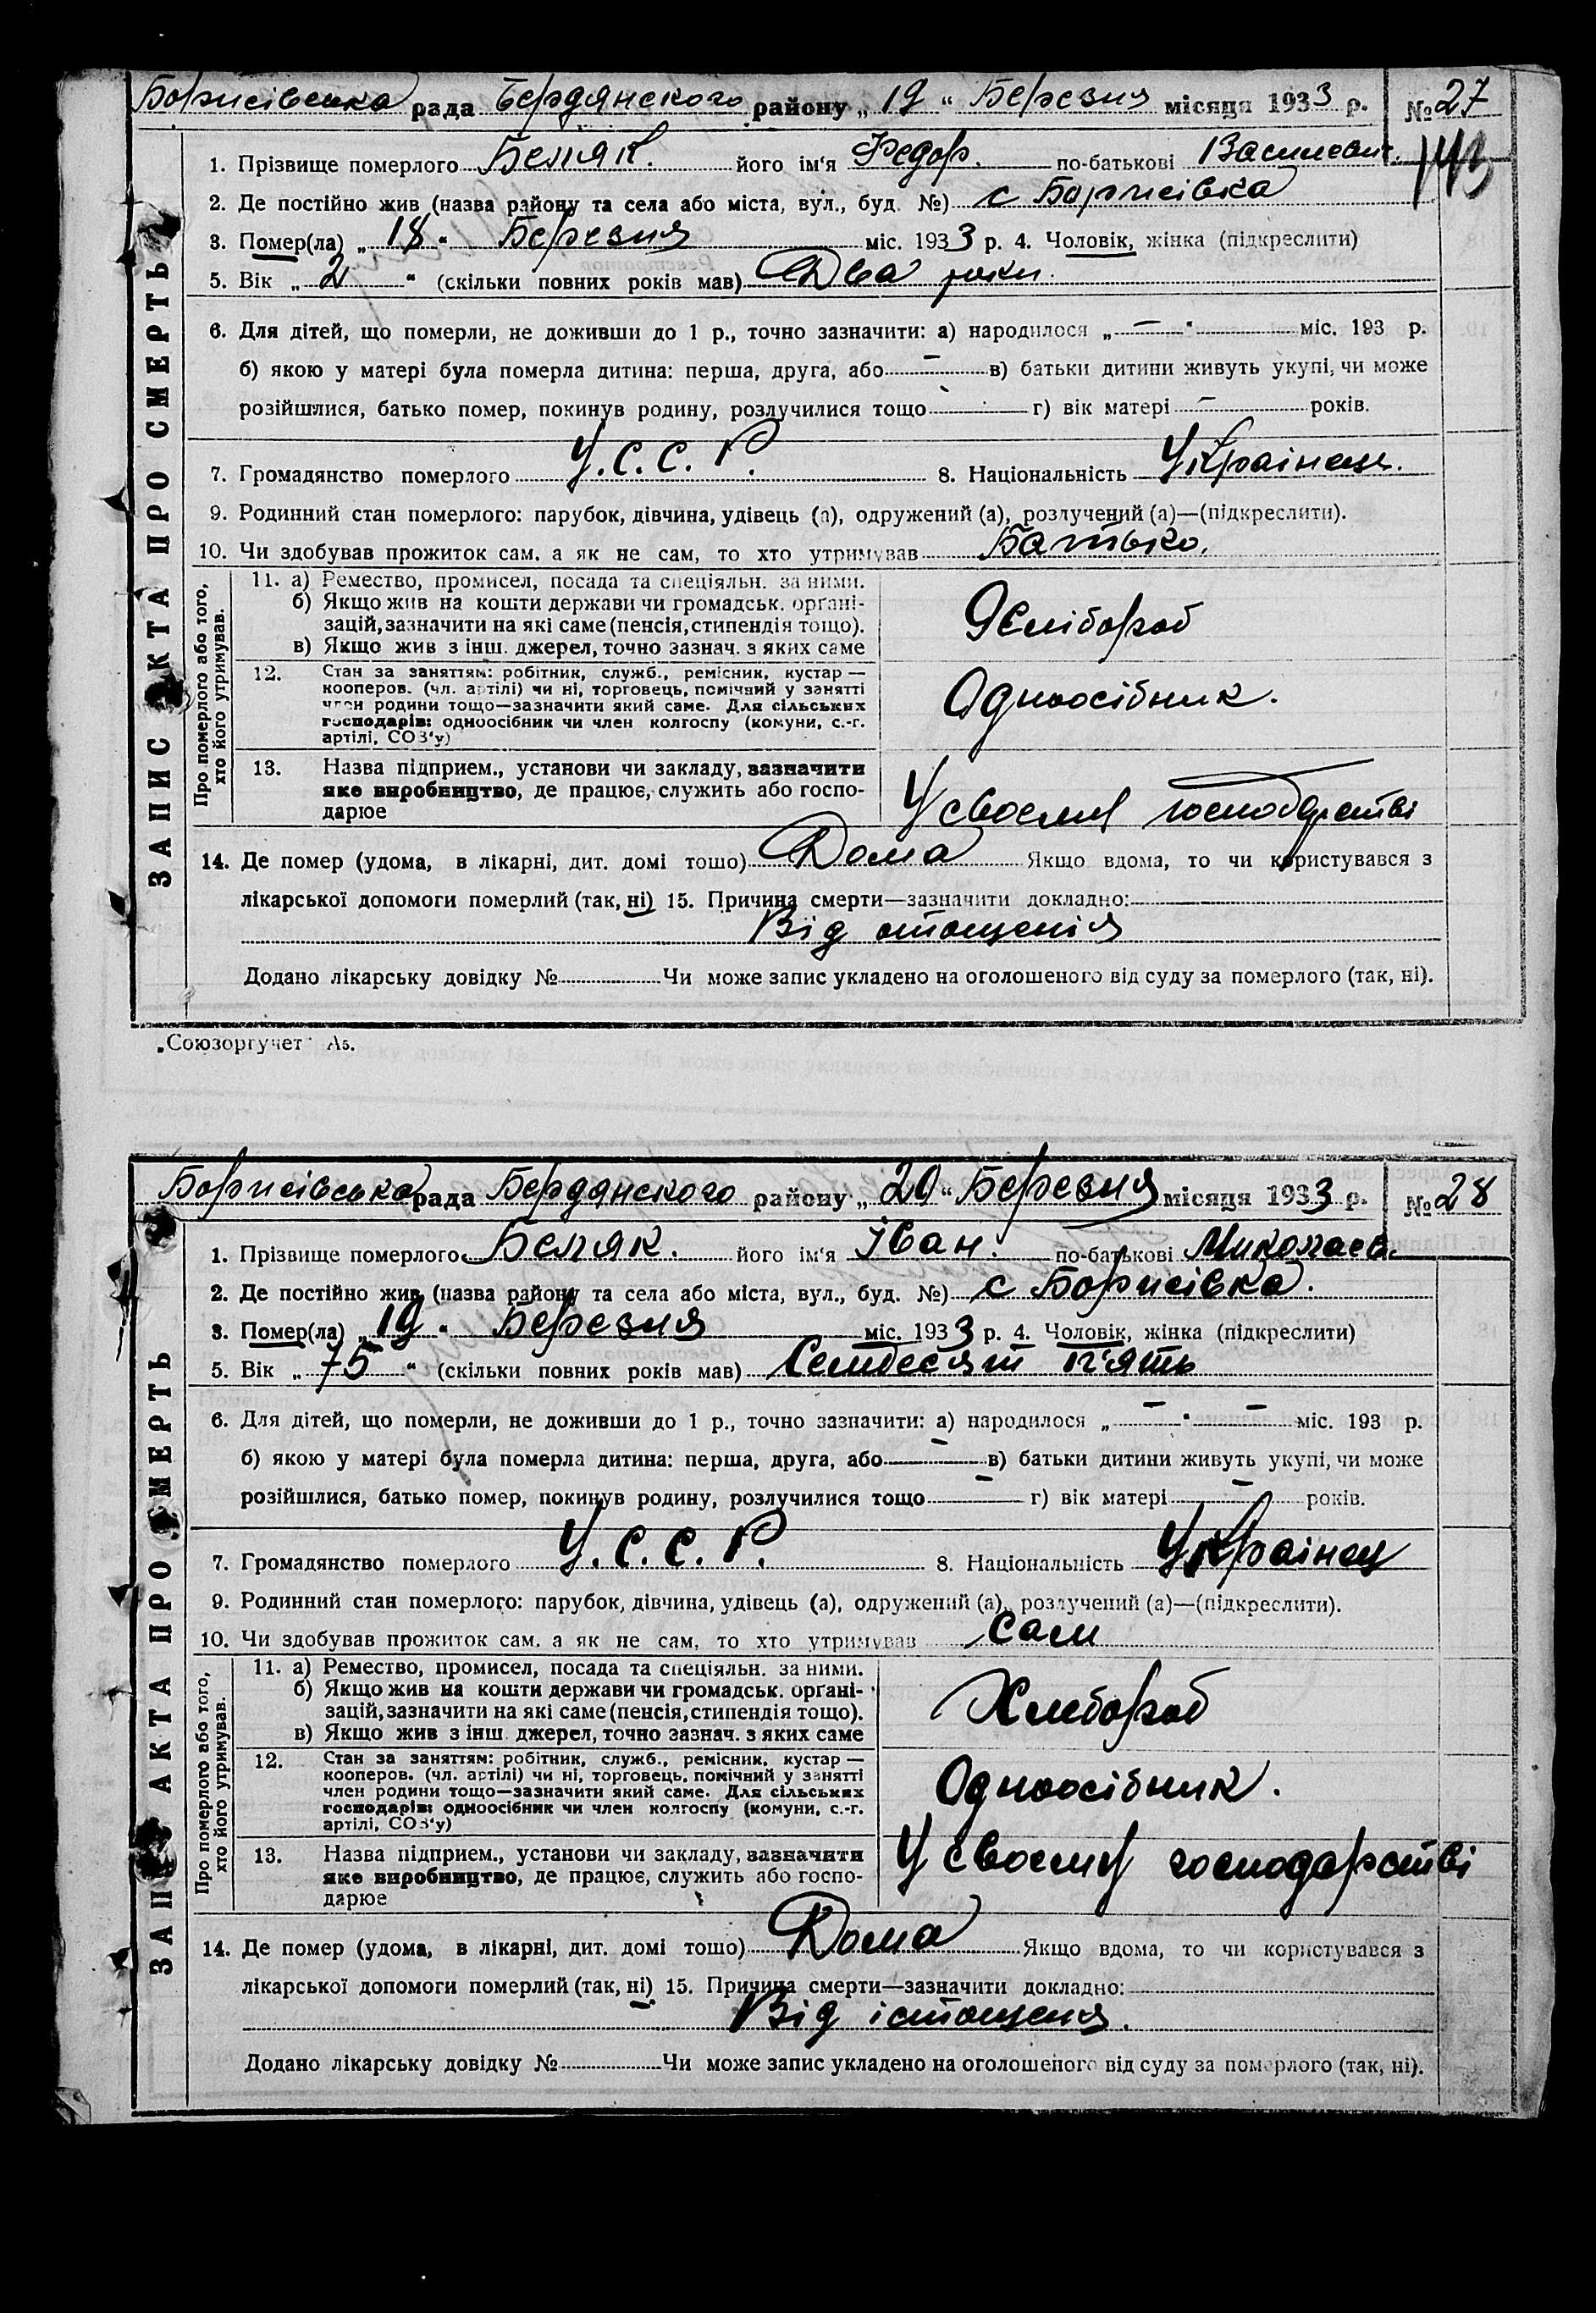 Борисівська рада Бердянского району „19“ Березня місяця 1933 р. № 27
143
1. Прізвище померлого Беляк. його ім‘я Федор. по-батькові Василевич.
2. Де постійно жив (назва району та села або міста, вул., буд. №) с Борисівка
3. Помер(ла) „18“ Березня міс. 1933 р. 4. Чоловік, жінка (підкреслити)
5. Вік „2“ (скільки повних років мав) Два роки.
6. Для дітей, що померли, не доживши до 1 р., точно зазначити: а) народилося „—“ міс. 193 р.
б) якою у матері була померла дитина: перша, друга, або — в) батьки дитини живуть укупі, чи може
розійшлися, батько помер, покинув родину, розлучилися тощо г) вік матері — років.
7. Громадянство померлого У.С.С.Р. 8. Національність Українець.
9. Родинний стан померлого: парубок, дівчина, удівець (а), одружений (а), розлучений (а)—(підкреслити).
10. Чи здобував прожиток сам, а як не сам, то хто утримував Батько.
Про померлого або того, хто його утримував.
11. а) Ремество, промисел, посада та спеціяльн. за ними.
б) Якщо жив на кошти держави чи громадськ. орґані-
зацій, зазначити на які саме (пенсія, стипендія тощо).
в) Якщо жив з інш. джерел, точно зазнач. з яких саме
Хлібороб
12. Стан за заняттям: робітник, служб., ремісник, кустар—
кооперов. (чл. артілі) чи ні, торговець, помічний у занятті
член родини тощо—зазначити який саме. Для сільських
господарів: одноосібник чи член колгоспу (комуни, с.-г.
артілі, СОЗ‘у)
Одноосібник.
13. Назва підприєм., установи чи закладу, зазначити
яке виробництво, де працює, служить або госпо-
дарює
У своєму господарстві
14. Де помер (удома, в лікарні, дит. домі тошо) Дома Якщо вдома, то чи користувався з
лікарської допомоги померлий (так, ні) 15. Причина смерти—зазначити докладно:
Від отощенія
Додано лікарську довідку № Чи може запис укладено на оголошеного від суду за померлого (так, ні).
ЗАПИС АКТА ПРО СМЕРТЬ
„Союзоргучет“ Аз.
Борисівська рада Бердянского району „20“ Березня місяця 1933 р. № 28
1. Прізвище померлого Беляк. його ім‘я Іван. по-батькові Миколаєв.
2. Де постійно жив (назва району та села або міста, вул., буд. №) с Борисівка.
3. Помер(ла) „19“ Березня міс. 1933 р. 4. Чоловік, жінка (підкреслити)
5. Вік „75“ (скільки повних років мав) Семдесят п‘ять
6. Для дітей, що померли, не доживши до 1 р., точно зазначити: а) народилося „—“ — міс. 193 р.
б) якою у матері була померла дитина: перша, друга, або — в) батьки дитини живуть укупі, чи може
розійшлися, батько помер, покинув родину, розлучилися тощо — г) вік матері — років.
7. Громадянство померлого У.С.С.Р. 8. Національність Українец
9. Родинний стан померлого: парубок, дівчина, удівець (а), одружений (а), розлучений (а)—(підкреслити).
10. Чи здобував прожиток сам, а як не сам, то хто утримував Сам
Про померлого або того, хто його утримував.
11. а) Ремество, промисел, посада та спеціяльн. за ними.
б) Якщо жив на кошти держави чи громадськ. орґані-
зацій, зазначити на які саме (пенсія, стипендія тощо).
в) Якщо жив з інш. джерел, точно зазнач. з яких саме
Хлебороб
12. Стан за заняттям: робітник, служб., ремісник, кустар—
кооперов. (чл. артілі) чи ні, торговець, помічний у занятті
член родини тощо—зазначити який саме. Для сільських
господарів: одноосібник чи член колгоспу (комуни, с.-г.
артілі, СОЗ‘у)
Одноосібник.
13. Назва підприєм., установи чи закладу, зазначити
яке виробництво, де працює, служить або госпо-
дарює
У своєму господарстві
14. Де помер (удома, в лікарні, дит. домі тошо) Дома Якщо вдома, то чи користувався з
лікарської допомоги померлий (так, ні) 15. Причина смерти—зазначити докладно:
Від істощеня.
Додано лікарську довідку № Чи може запис укладено на оголошеного від суду за померлого (так, ні).
ЗАПИС АКТА ПРО СМЕРТЬ